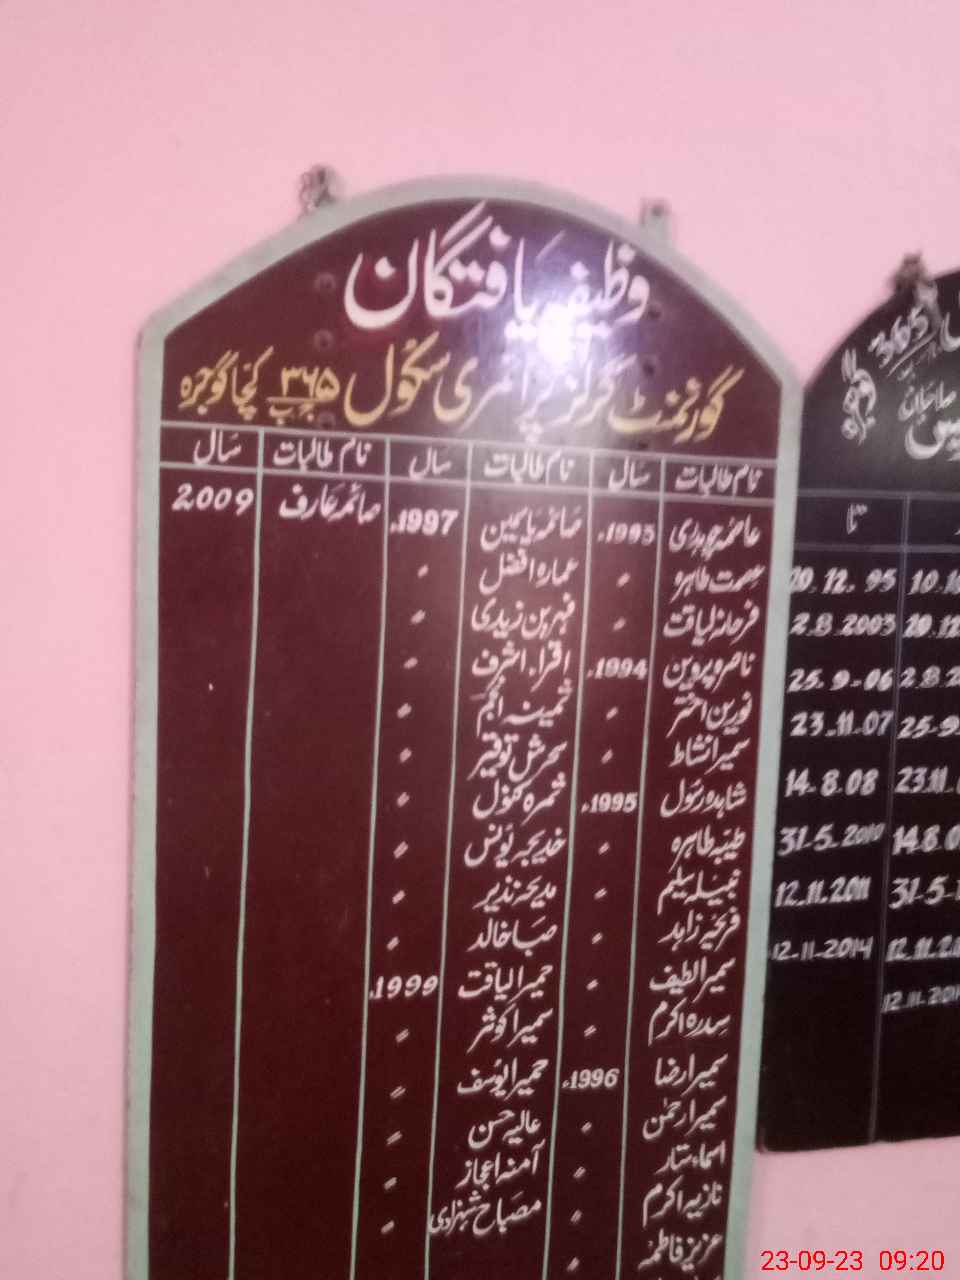 وظیفہ یافتگان
گورنمنٹ گرلز پرائمری سکول ۳۶۵ ج ب کچا گوجرہ
نام طالبات سال نام طالبات سال نام طالبات سال
عاصمہ چوہدری 1993ء صائمہ یاسمین 1997ء صائمہ عارف 2009
عصمت طاہرہ 〃 عمارہ افضل 〃
فرحانہ لیاقت 〃 زیدی 〃
ناصرہ پروین 1994ء اقراء اشرف 〃
نورین اختر 〃 ثمینہ انجم 〃
سمیرا نشاط 〃 سحرش توقیر 〃
شاہدہ رسول 1995ء ثمرہ کنول 〃
طیبہ طاہرہ 〃 خدیجہ یونس 〃
نبیلہ سلیم 〃 مدیحہ نذیر 〃
زاہد 〃 صبا خالد 〃
سمیرا لطیف 〃 حمیرا لیاقت 1999ء
سدرہ اکرم 〃 سمیرا کوثر 〃
سمیرا رضا 1996ء حمیرا یوسف 〃
سمیرا رحمٰن 〃 عالیہ حسن 〃
اسماء ستار 〃 آمنہ اعجاز 〃
نازیہ اکرم 〃 مصباح شہزادی 〃
عزیز فاطمہ 〃
365
تا
20.12.95
2.8.2003
25.9-06
23.11.07
14.8.08
31-5-2010
12.11.2011
12-11-2014
23-09-23 09:20